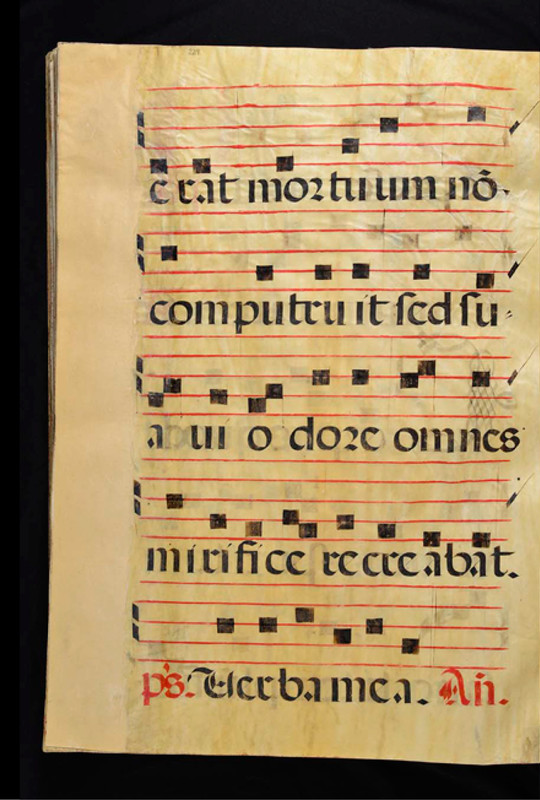 erat mortuum nō
computruit sed su
aui odore omnes
mirifice recreabat.
ps. Uerba mea. An.